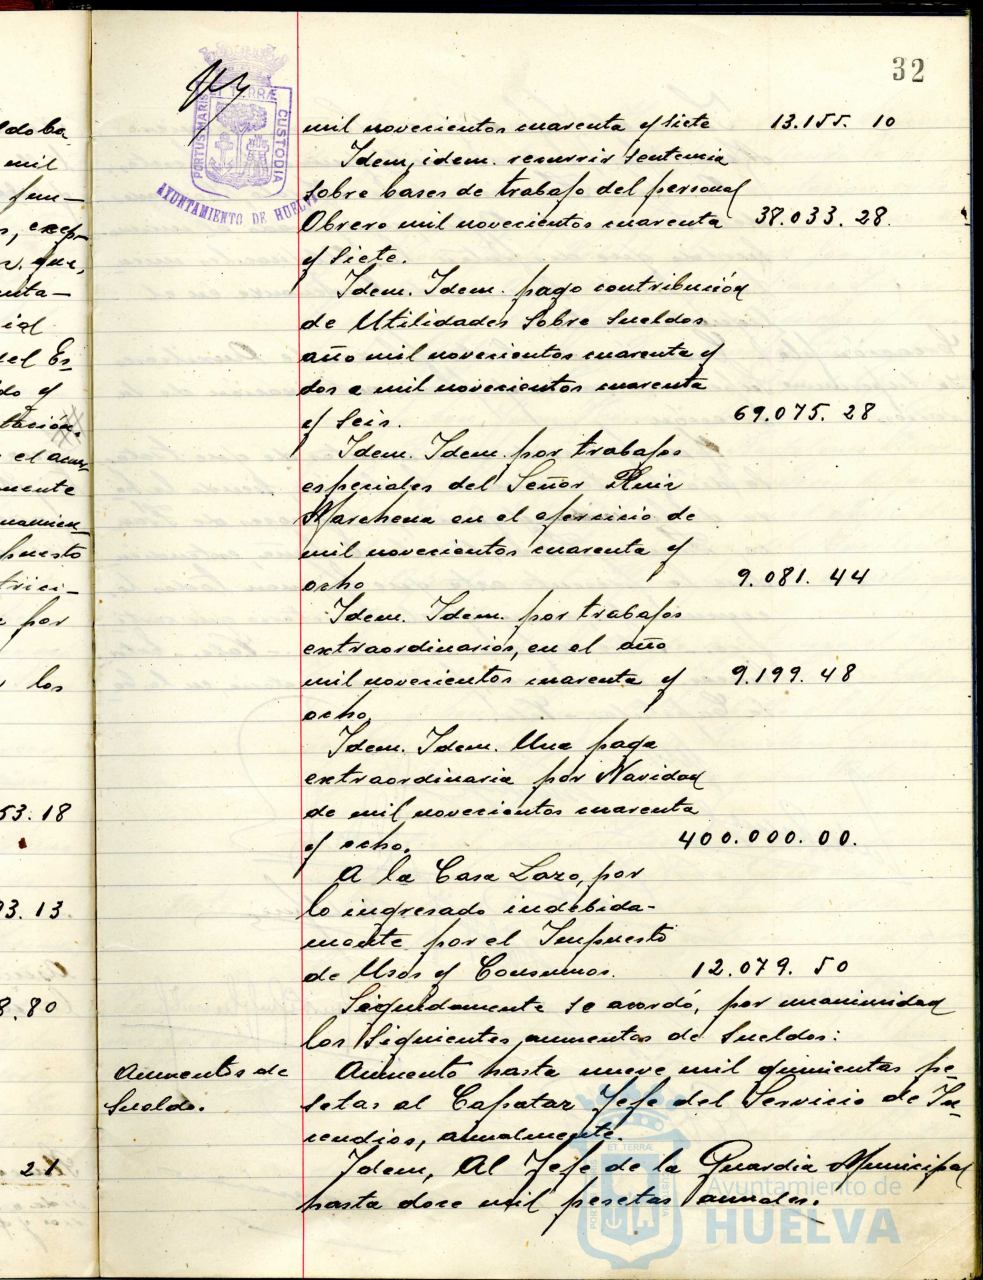 32
PORTUS MARIS ET TERRÆ CUSTODIA
AYUNTAMIENTO DE HUELVA
mil novecientos cuarenta y siete 13.155. 10
Idem, idem. recurrir sentencia
sobre bases de trabajo del personal
Obrero mil novecientos cuarenta 38.033. 28.
y siete.
Idem. Idem. pago contribución
de Utilidades sobre sueldos
año mil novecientos cuarenta y
dos a mil novecientos cuarenta
y seis. 69.075. 28
Idem. Idem. por trabajos
especiales del Señor Ruiz
Marchena en el ejercicio de
mil novecientos cuarenta y
ocho 9.081. 44
Idem. Idem. por trabajos
extraordinarios, en el año
mil novecientos cuarenta y 9.199. 48
ocho.
Idem. Idem. Una paga
extraordinaria por Navidad
de mil novecientos cuarenta
y ocho. 400.000.00.
A la Casa Lazo, por
lo ingresado indebida-
mente por el Impuesto
de Usos y Consumos. 12.079. 50
Seguidamente se acordó, por unanimidad
los siguientes aumentos de sueldos:
Aumentos de
sueldo.
Aumento hasta nueve mil quinientas pe-
setas al Capataz Jefe del Servicio de In-
cendios, anualmente.
Idem, Al Jefe de la Guardia Municipal
hasta doce mil pesetas anuales.
Ayuntamiento de
HUELVA
do y
el acuer
puesto
por
los
53.18
93.13.
8.80
21